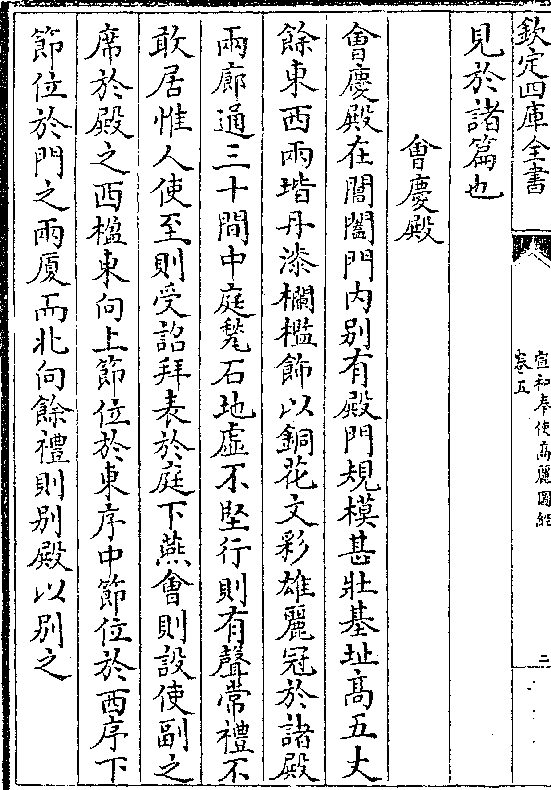 欽定四庫全書
宣和奉使高麗圖經
卷五
二
見於諸篇也
會慶殿
會慶殿在閶闔門内别有殿門規模甚壯基址高五丈
餘東西兩堦丹漆欄檻飾以銅花文彩雄麗冠於諸殿
兩廊通三十間中庭甃石地虛不堅行則有聲常禮不
敢居惟人使至則受詔拜表於庭下燕會則設使副之
席於殿之西楹東向上節位於東序中節位於西序下
節位於門之兩厦而北向餘禮則别殿以别之